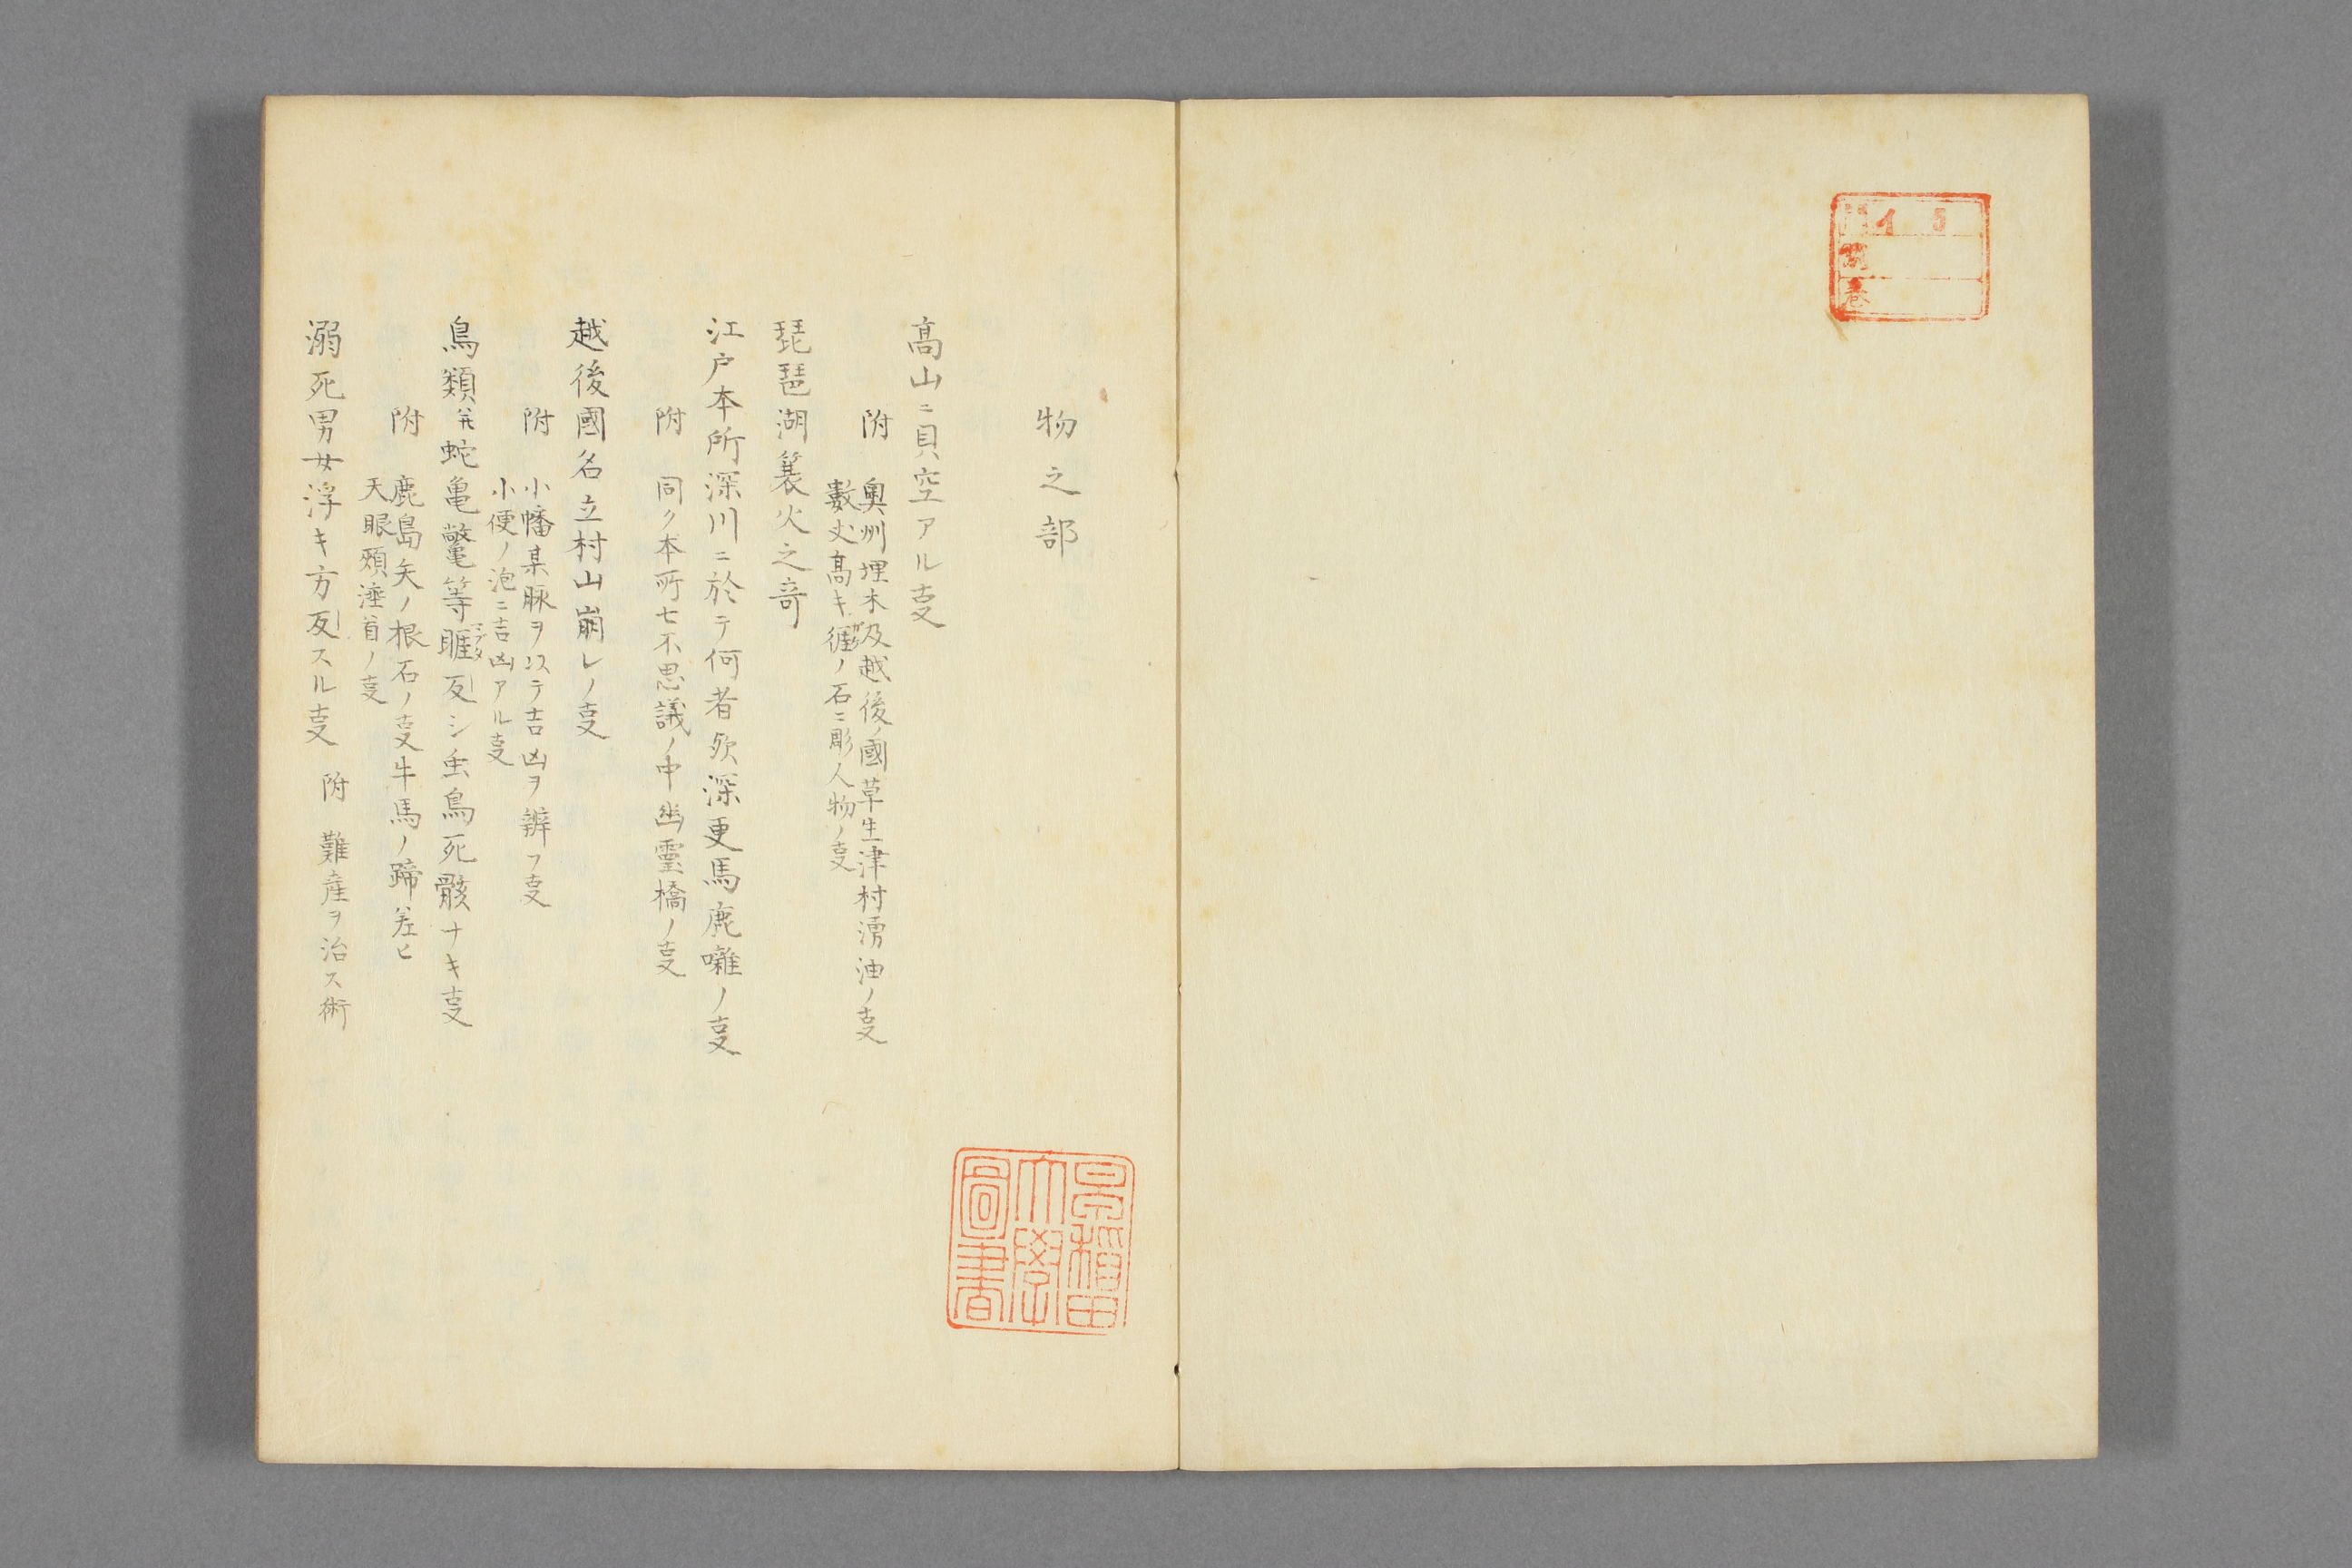 門 イ 5
號
巻
物之部
高山ニ貝空アル㕝
附 奥州埋木及越後ノ國草生津村湧油ノ㕝
數丈高キ ノ石ニ彫人物ノ㕝
琵琶湖簑火之奇
江戸本所深川ニ於テ何者歟深更馬鹿囃ノ㕝
附 同ク本所七不思議ノ中幽霊橋ノ㕝
越後國名立村山崩レノ㕝
附 小幡某脉ヲ以テ吉凶ヲ辨フ㕝
小便ノ泡ニ吉凶アル㕝
鳥類并蛇亀鼈等睚マブタ反シ虫鳥死骸ナキ㕝
附 鹿島矢ノ根石ノ㕝牛馬ノ蹄差ヒ
天眼頻 首ノ㕝
溺死男女浮キ方反スル㕝 附 難産ヲ治ス術
早稲田
大學
圖書